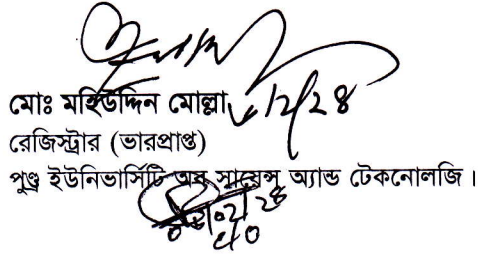 মোঃ মহিউদ্দিন মোল্লা
রেজিস্ট্রার (ভারপ্রাপ্ত)
পুণ্ড্র ইউনিভার্সিটি অব সায়েন্স অ্যান্ড টেকনোলজি।